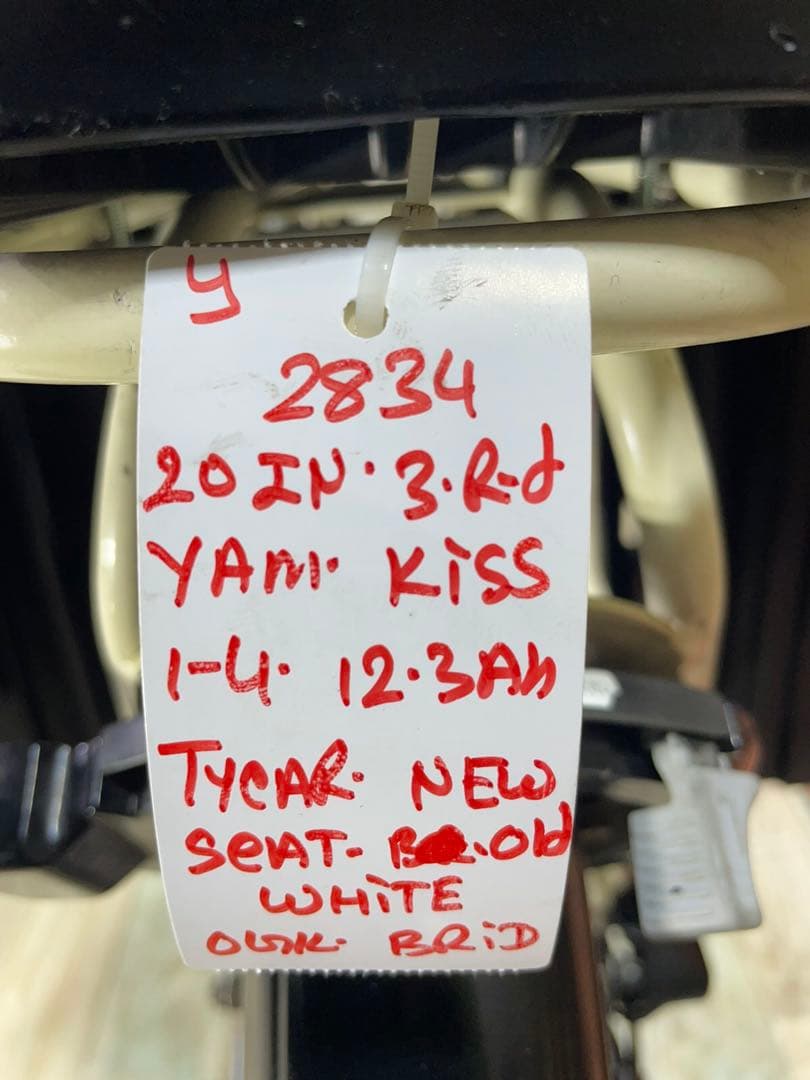 Y
2834
20 IN. 3.R-d
YAM. KiSS
1-4. 12.3Ah
TYCAR. NEW
SeAT- Old
WHiTE
BRiD